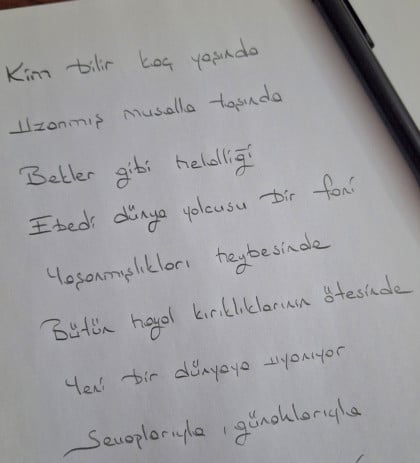 Kim bilir kaç yaşında
Uzanmış musalla taşında
Bekler gibi helalliği
Ebedi dünya yolcusu bir fani
Yaşanmışlıkları heybesinde
Bütün hayal kırıklıklarının ötesinde
Yeni bir dünyaya uyanıyor
Sevaplarıyla, günahlarıyla